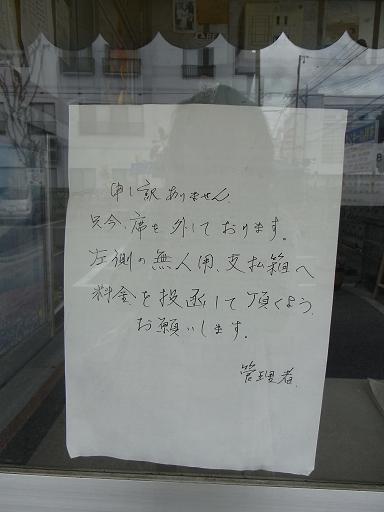 申し訳ありません。
只今、席を外しております。
左側の無人用、支払箱へ
料金を投函して頂くよう、
お願いします。
管理者